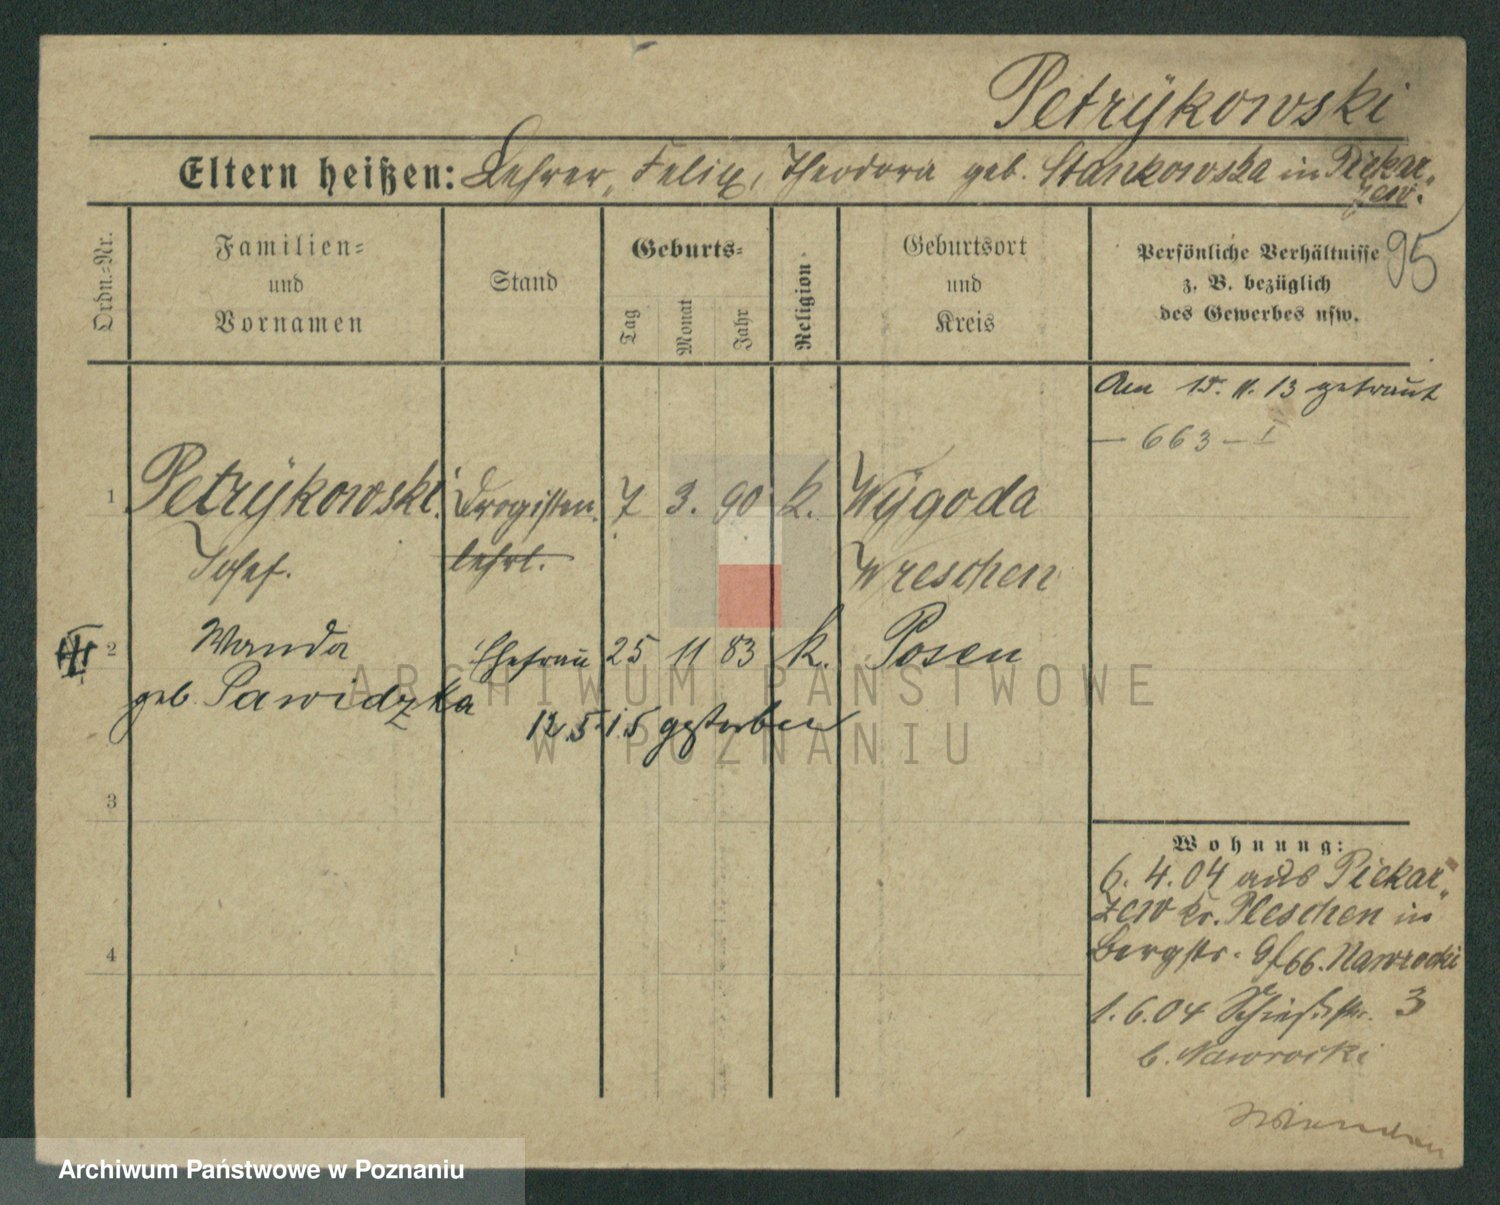 Petrÿkowski
Eltern heißen: Lehrer, Felix, Theodora geb. Stankowska in Piekar„
zew.
95
Ordn.=Nr.
Familien=
und
Vornamen
Stand
Geburts=
Tag
Monat
Jahr
Religion
Geburtsort
und
Kreis
Persönliche Verhältnisse
z. B. bezüglich
des Gewerbes usw.
Am 15. 11. 13 getraut
— 663 — I
1 Petrÿkowski Drogisten 7 3. 90 k. Wÿgoda
Josef. lehrl. Wreschen
2 Wanda Ehefrau 25 11 83 k. Posen
geb. Pawidzka
12.5.15 gestorben
3
4
Wohnung:
6. 4. 04 aus Piekar„
zew Kr. Pleschen in
Bergstr. 9/66. Nawrocki
1. 6. 04 Schießstr. 3
b. Nawrocki
ARCHIWUM PAŃSTWOWE
W POZNANIU
Archiwum Państwowe w Poznaniu